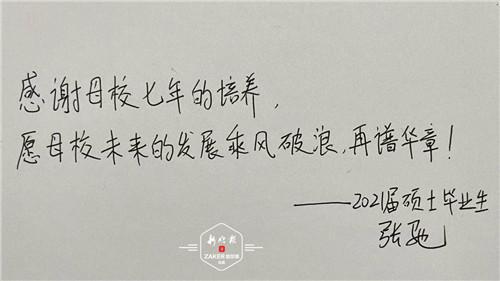 感谢母校七年的培养，
愿母校未来的发展乘风破浪，再谱华章！
——2021届硕士毕业生
张驰
新晚报
ZAKER哈尔滨